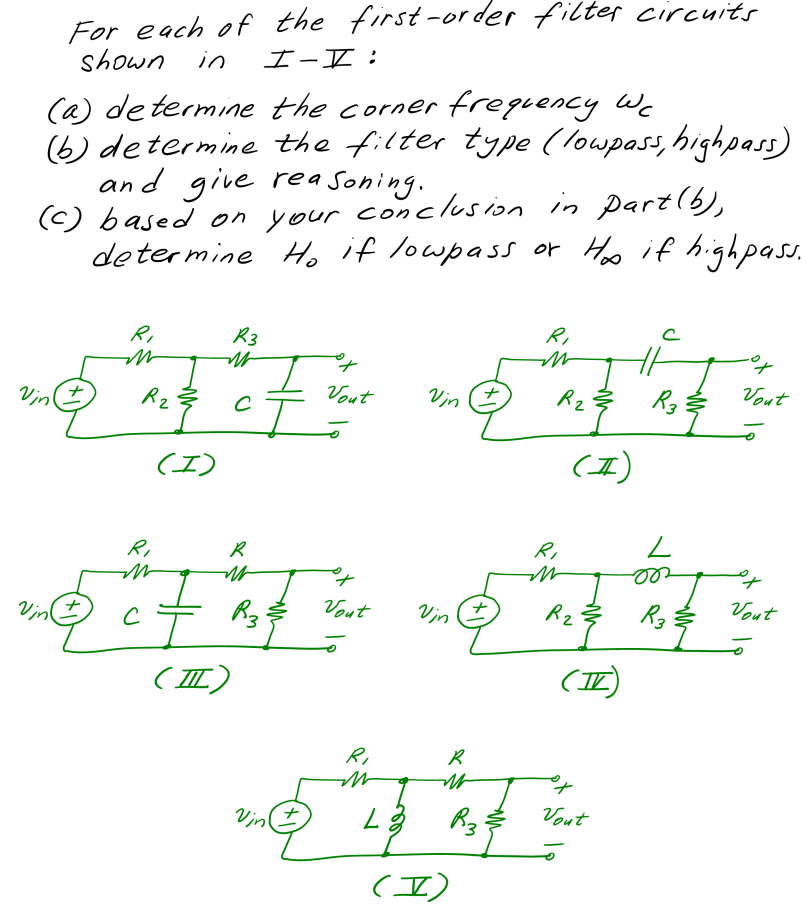 For each of the first-order filter circuits
shown in I-V:
(a) determine the corner frequency ωc
(b) determine the filter type (lowpass, highpass)
and give reasoning.
(c) based on your conclusion in part(b),
determine H₀ if lowpass or H∞ if highpass.
R₁ R₃
+
Vin + − R₂ C Vout
−
(I)
R₁ C
+
Vin + − R₂ R₃ Vout
−
(II)
R₁ R
+
Vin + − C R₃ Vout
−
(III)
R₁ L
+
Vin + − R₂ R₃ Vout
−
(IV)
R₁ R
+
Vin + − L R₃ Vout
−
(V)